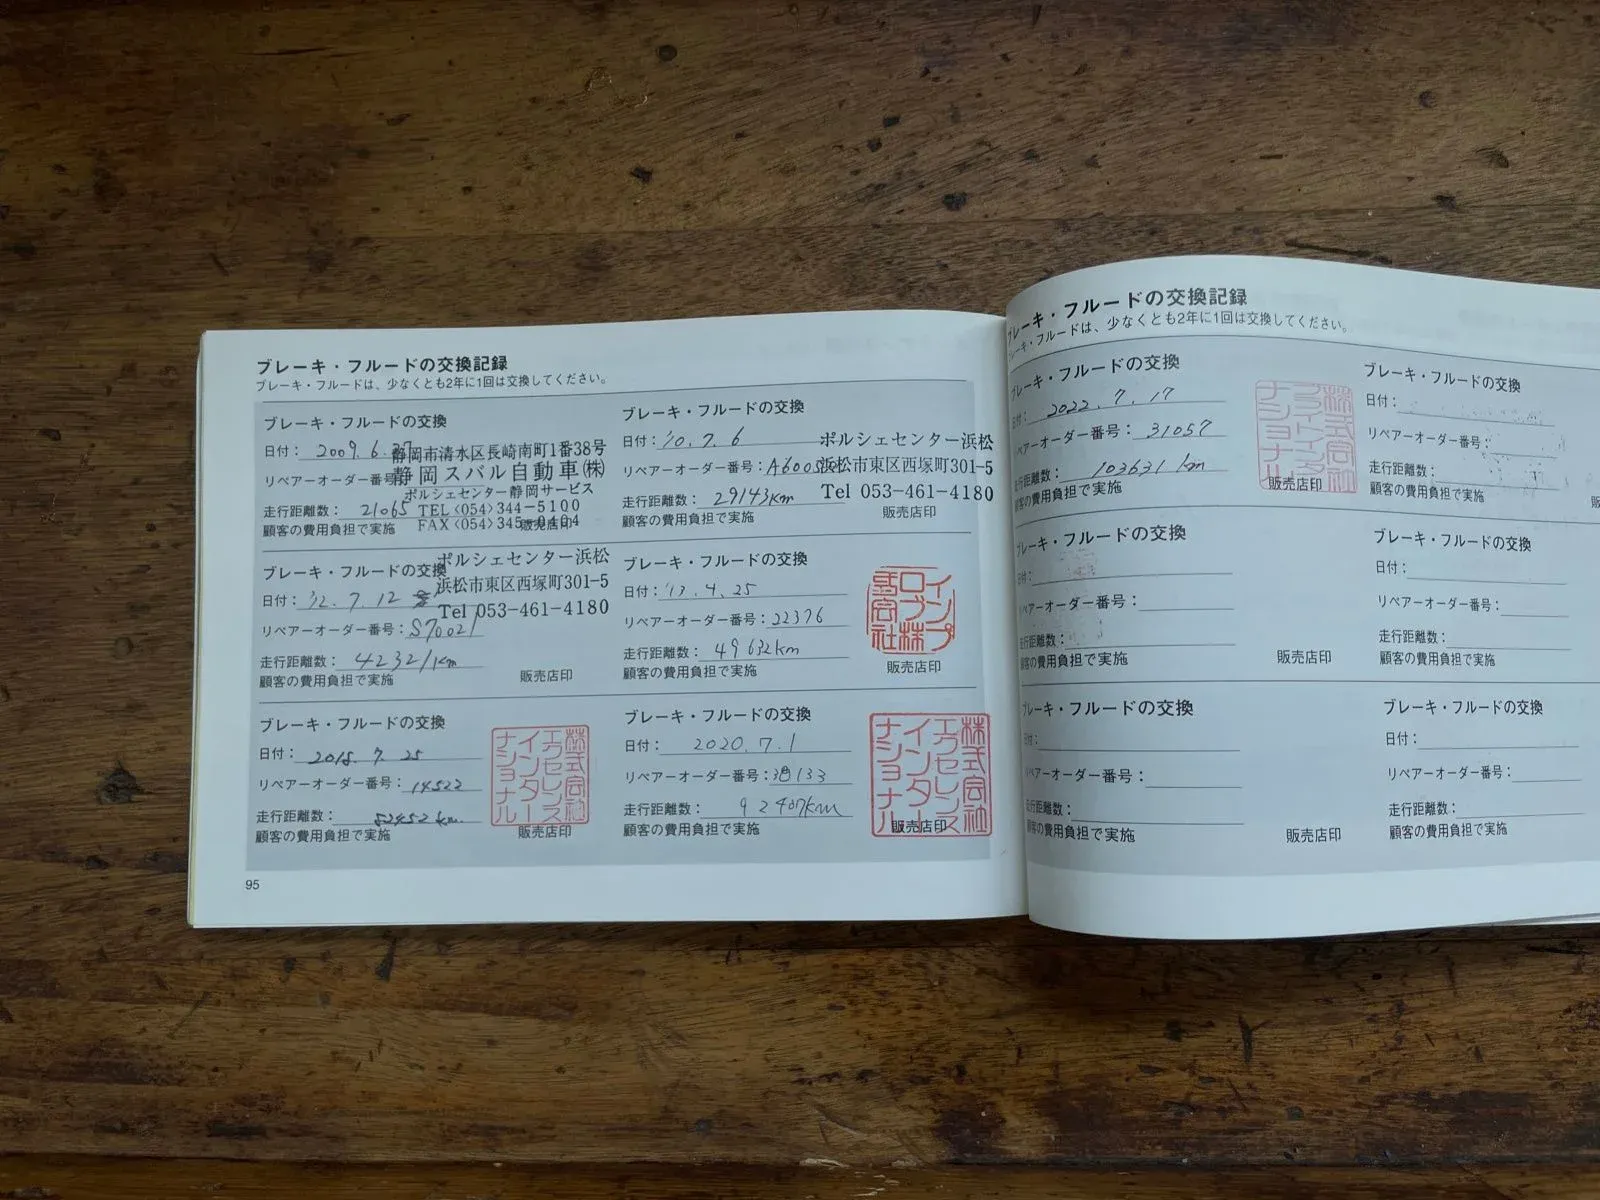 ブレーキ・フルードの交換記録
ブレーキ・フルードは、少なくとも2年に1回は交換してください。
ブレーキ・フルードの交換
日付： 2009. 6.
リペアーオーダー番号
走行距離数： 21065
顧客の費用負担で実施
静岡市清水区長崎南町1番38号
静岡スバル自動車㈱
ポルシェセンター静岡サービス
TEL<054>344-5100
FAX<054>345-0404
販売店印
ブレーキ・フルードの交換
日付： '10. 7. 6
リペアーオーダー番号： A6005
走行距離数： 29143km
顧客の費用負担で実施
ポルシェセンター浜松
浜松市東区西塚町301-5
Tel 053-461-4180
販売店印
ブレーキ・フルードの交換
日付： '12. 7. 12
リペアーオーダー番号： S70021
走行距離数： 42321km
顧客の費用負担で実施
ポルシェセンター浜松
浜松市東区西塚町301-5
Tel 053-461-4180
販売店印
ブレーキ・フルードの交換
日付： '13. 4. 25
リペアーオーダー番号： 22376
走行距離数： 49632km
顧客の費用負担で実施
販売店印
ブレーキ・フルードの交換
日付： 2015. 7. 25
リペアーオーダー番号： 14522
走行距離数： 52452km
顧客の費用負担で実施
株式会社
エクセレンス
インター
ナショナル
販売店印
ブレーキ・フルードの交換
日付： 2020. 7. 1
リペアーオーダー番号： 38133
走行距離数： 92407km
顧客の費用負担で実施
株式会社
エクセレンス
インター
ナショナル
販売店印
95
ブレーキ・フルードの交換記録
ブレーキ・フルードは、少なくとも2年に1回は交換してください。
ブレーキ・フルードの交換
日付： 2022. 7. 17
リペアーオーダー番号： 31057
走行距離数： 103631km
顧客の費用負担で実施
株式会社
ナショナル
販売店印
ブレーキ・フルードの交換
日付：
リペアーオーダー番号：
走行距離数：
顧客の費用負担で実施
ブレーキ・フルードの交換
日付：
リペアーオーダー番号：
走行距離数：
顧客の費用負担で実施
販売店印
ブレーキ・フルードの交換
日付：
リペアーオーダー番号：
走行距離数：
顧客の費用負担で実施
ブレーキ・フルードの交換
日付：
リペアーオーダー番号：
走行距離数：
顧客の費用負担で実施
販売店印
ブレーキ・フルードの交換
日付：
リペアーオーダー番号：
走行距離数：
顧客の費用負担で実施